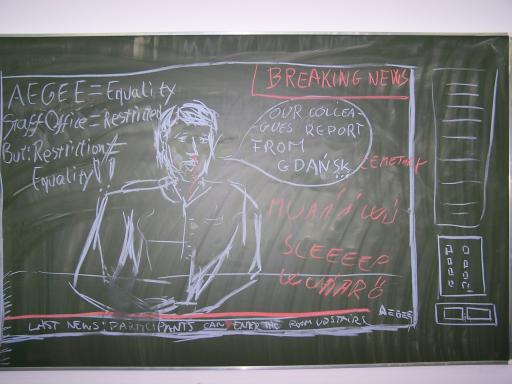 AEGEE = Equality
Staff Office = Restricted
But: Restriction ≠
Equality!!
BREAKING NEWS
OUR COLLEA-
GUES REPORT
FROM
GDAŃSK CEMETARY
SLEEEEP
LAST NEWS: PARTICIPANTS CAN ENTER THE ROOM UPSTAIRS
AEGEE